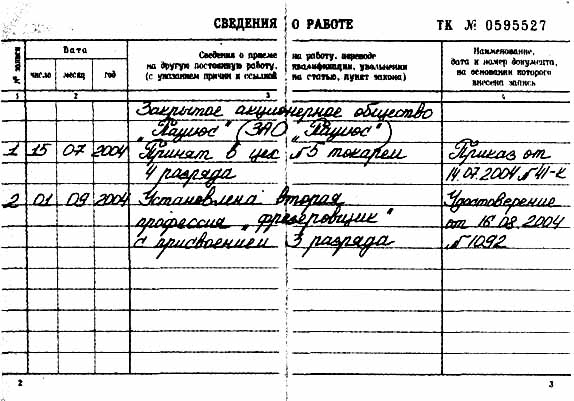 СВЕДЕНИЯ О РАБОТЕ ТК № 0595527
№ записи
Дата
Сведения о приеме на работу, переводе
на другую постоянную работу, квалификации, увольнении
(с указанием причин и ссылкой на статью, пункт закона)
Наименование,
дата и номер документа,
на основании которого
внесена запись
число месяц год
1 2 3 4
Закрытое акционерное общество
"Радиос" (ЗАО "Радиос")
1 15 07 2004 Принят в цех №5 токарем Приказ от
4 разряда 14.07.2004 №41-к
2 01 09 2004 Установлена вторая Удостоверение
профессия "фрезеровщик" от 16.08.2004
с присвоением 3 разряда №1092
2 3